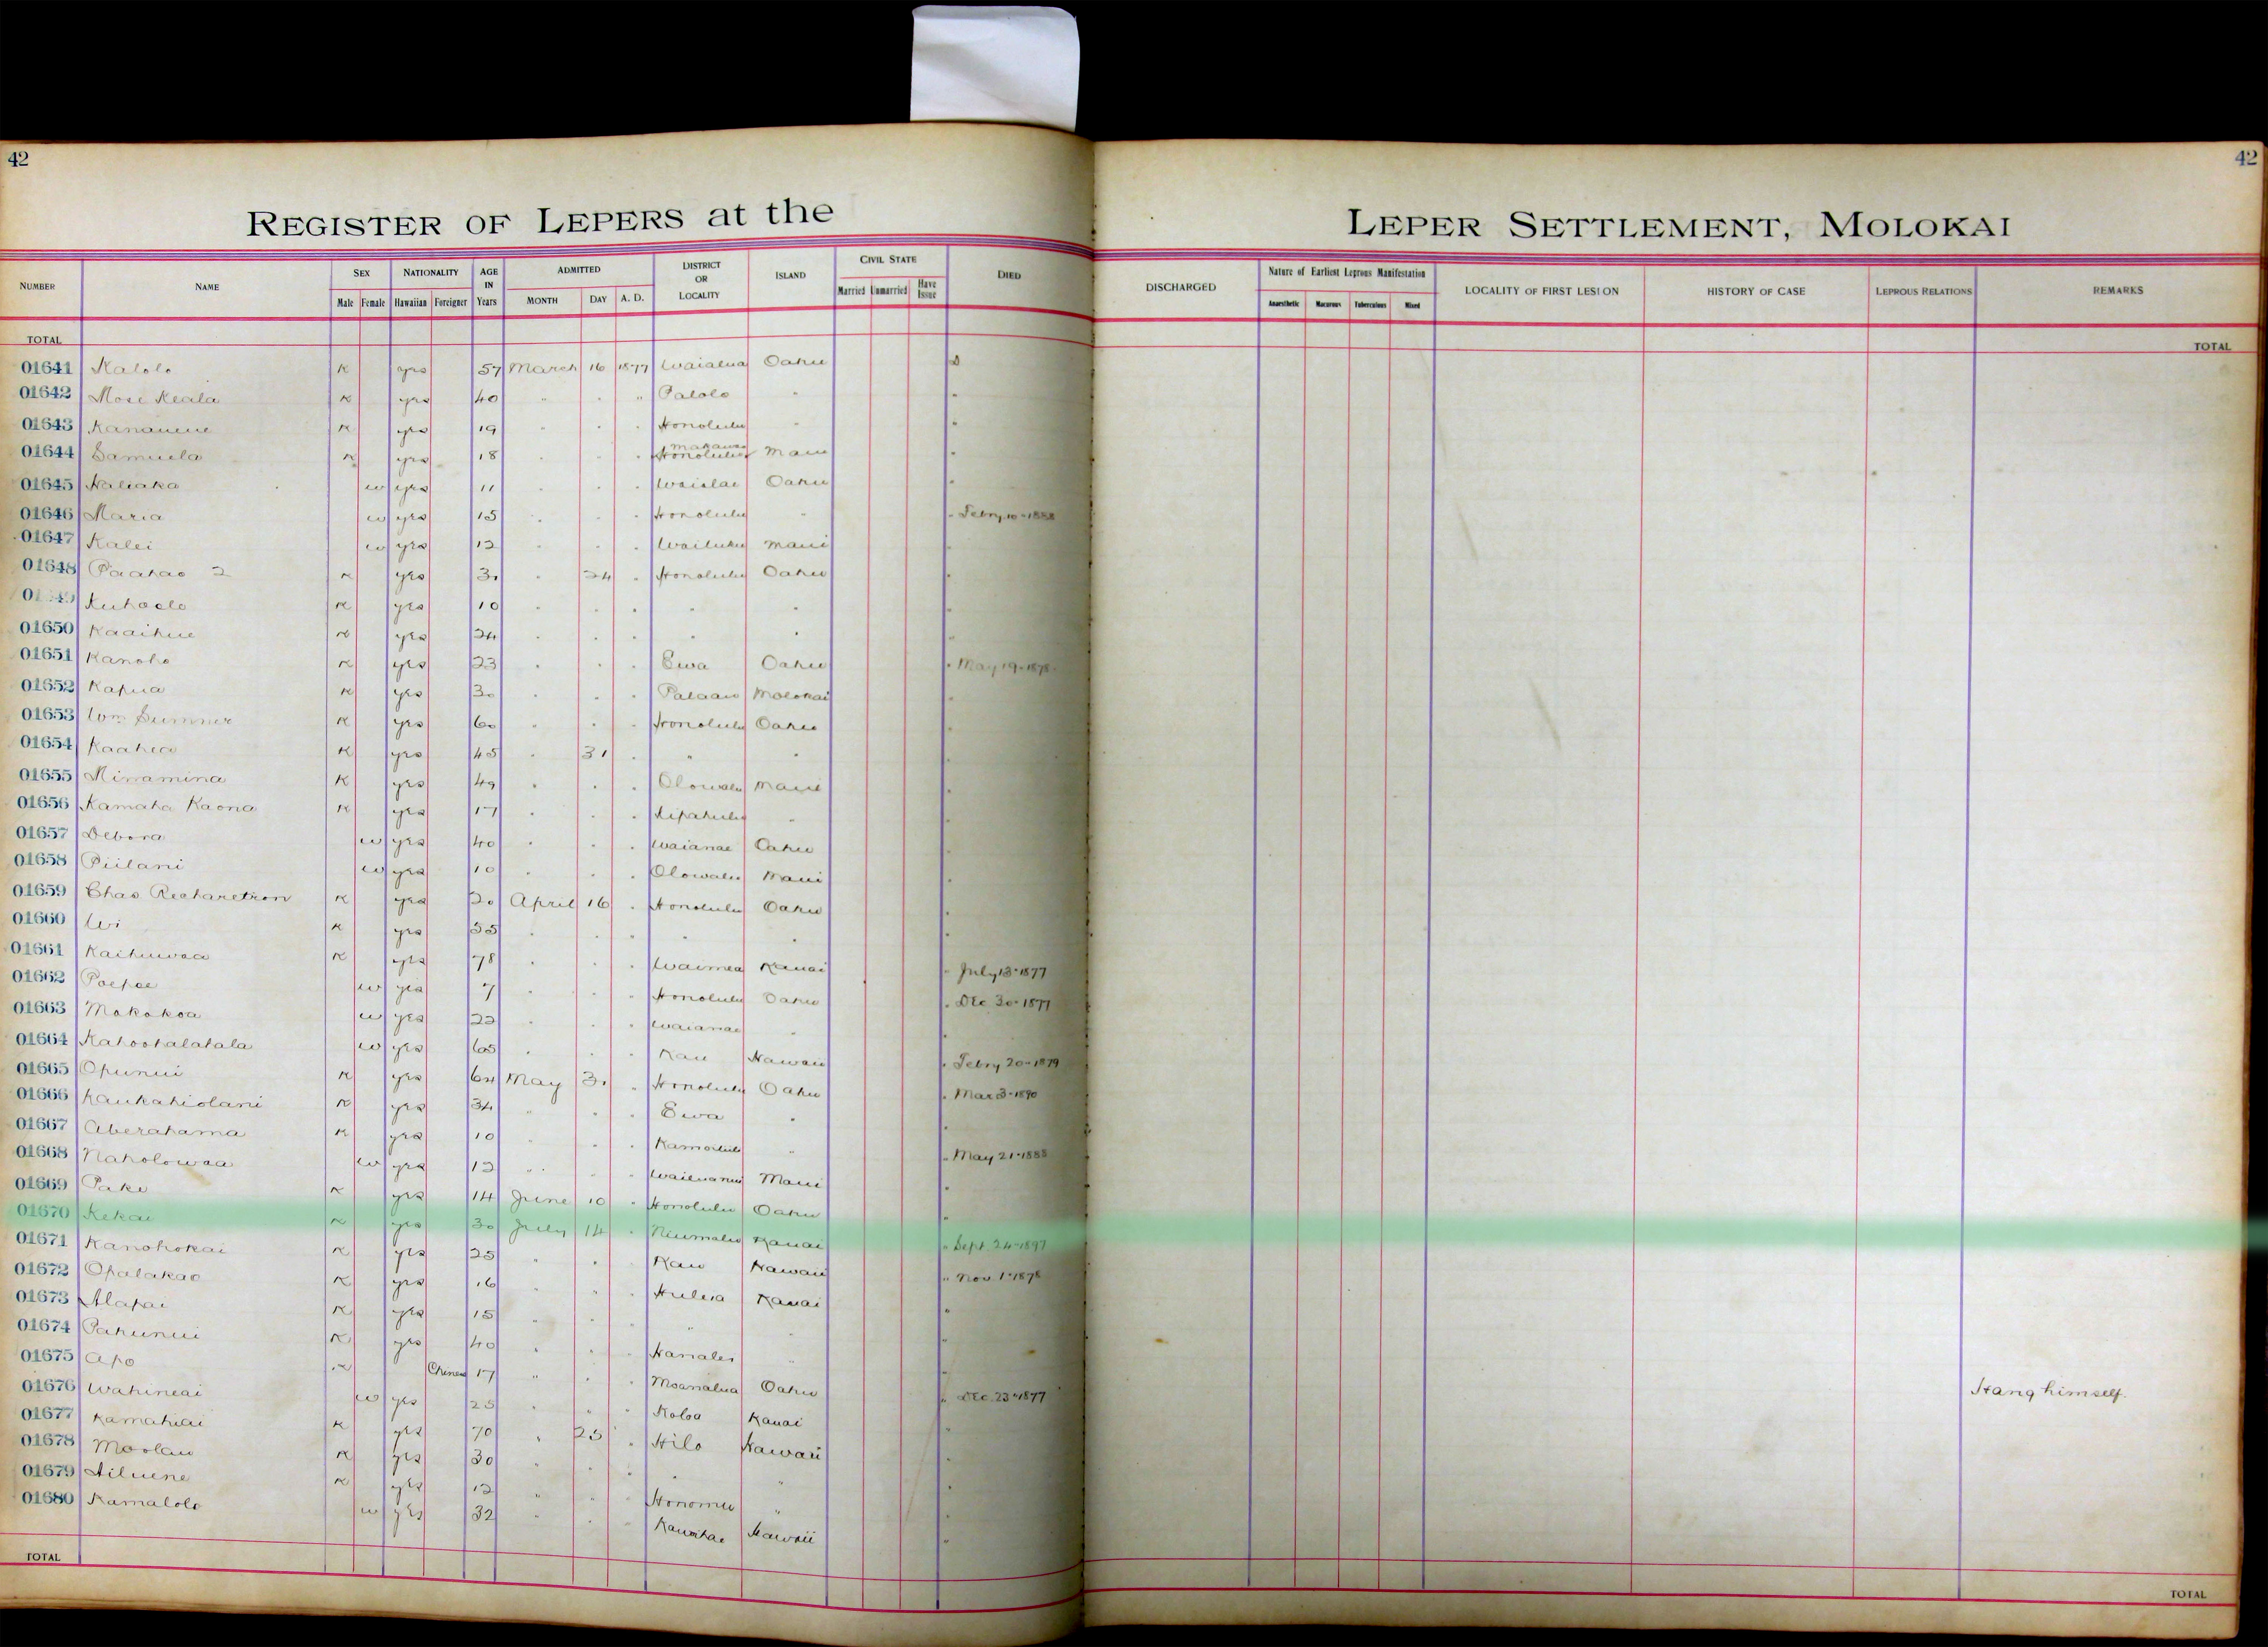 42
42
REGISTER OF LEPERS at the LEPER SETTLEMENT, MOLOKAI
NUMBER NAME SEX Male Female NATIONALITY Hawaiian Foreigner AGE IN Years ADMITTED MONTH DAY A. D. DISTRICT OR LOCALITY ISLAND CIVIL STATE Married Unmarried Have Issue DIED DISCHARGED Nature of Earliest Leprous Manifestation Anaesthetic Macurous Tuberculous Mixed LOCALITY OF FIRST LESION HISTORY OF CASE LEPROUS RELATIONS REMARKS
TOTAL TOTAL
01641 Kalolo K yes 57 March 16 1877 Waialua Oahu D
01642 Mose Keala K yes 40 " " " Palolo " "
01643 K yes 19 " " " Honolulu " "
01644 Samuela K yes 18 " " " Honolulu Makawao Maui "
01645 Naliaka w yes 11 " " " Waialae Oahu "
01646 Maria w yes 15 " " " Honolulu " " Febry 10-1888
01647 Kalei w yes 12 " " " Wailuku Maui "
01648 Paahao 2 K yes 30 " 24 " Honolulu Oahu "
Kuhaelo K yes 10 " " " " " "
01650 Kaaihue K yes 24 " " " " " "
01651 Kanoho K yes 23 " " " Ewa Oahu " May 19-1878
01652 Kapua K yes 30 " " " Palaau Molokai "
01653 Wm Sumner K yes 60 " " " Honolulu Oahu "
01654 Kaahea K yes 45 " 31 " " " "
01655 Minamina K yes 49 " " " Olowalu Maui "
01656 Kamaha Kaona K yes 17 " " " Kipahulu " "
01657 Debora w yes 40 " " " Waianae Oahu "
01658 Piilani w yes 10 " " " Olowalu Maui "
01659 Chas Richardson K yes 20 April 16 " Honolulu Oahu "
01660 Wi K yes 35 " " " " " "
01661 Kaihuwaa K yes 78 " " " Waimea Kauai " July 13-1877
01662 Poepoe w yes 7 " " " Honolulu Oahu " Dec. 30-1877
01663 Makakoa w yes 22 " " " Waianae " "
01664 Kahoohalahala w yes 65 " " " Kau Hawaii " Febry 20-1879
01665 Opunui K yes 64 May 31 " Honolulu Oahu " Mar 3-1890
01666 Kaukahiolani K yes 34 " " " Ewa " "
01667 Aberahama K yes 10 " " " Kamoiliili " " May 21-1888
01668 Naholowaa w yes 12 " " " Wailuanui Maui "
01669 Pake K yes 14 June 10 " Honolulu Oahu "
01670 Kekai K yes 30 July 14 " Niumalu Kauai " Sept. 24-1897
01671 Kanohokai K yes 25 " " " Kau Hawaii " Nov. 1-1878
01672 Opalakao K yes 16 " " " Huleia Kauai "
01673 Alapai K yes 15 " " " " " "
01674 Pahunui K yes 40 " " " Hanalei " "
01675 Apo K Chinese 17 " " " Moanalua Oahu " Dec. 23-1877 Hang himself.
01676 Wahineai w yes 25 " " " Koloa Kauai "
01677 Kamahiai K yes 70 " 25 " Hilo Hawaii "
01678 Moolau K yes 30 " " " " " "
01679 K yes 12 " " " Honomu " "
01680 Kamalolo w yes 32 " " " Kawaihae Hawaii "
TOTAL TOTAL